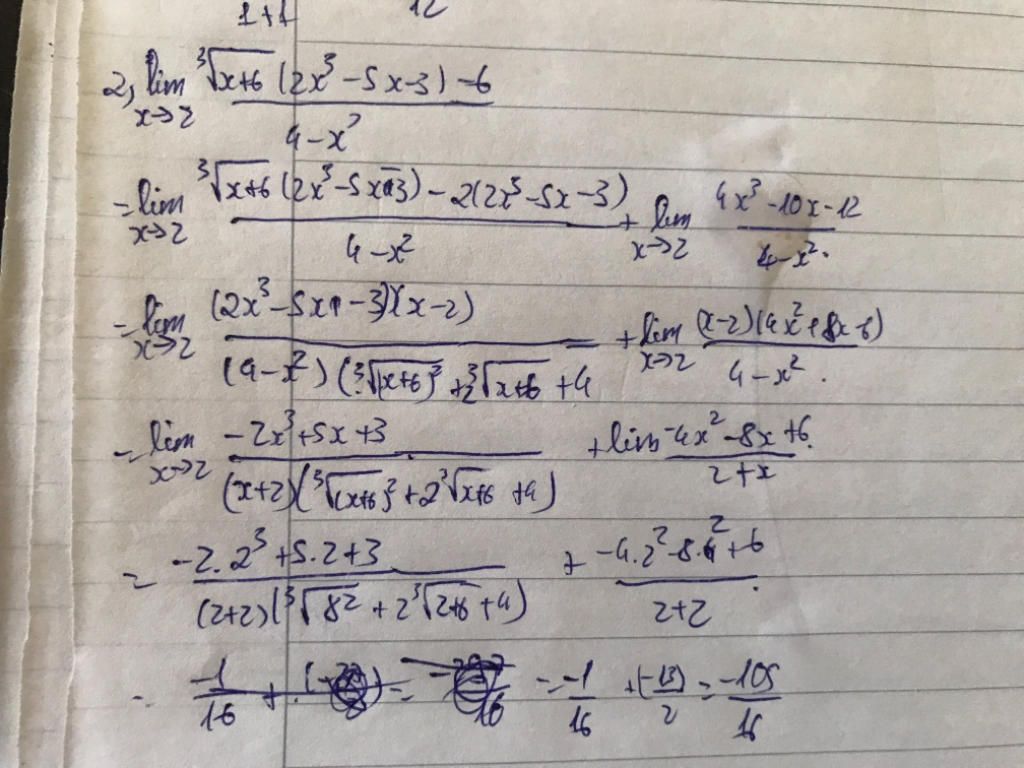 1+1 12
2, lim x→2 ∛(x+6) (2x³-5x-3) -6 / 4-x²
= lim x→2 ∛(x+6) (2x³-5x-3) - 2(2x³-5x-3) / 4-x² + lim x→2 4x³-10x-12 / 4-x².
= lim x→2 (2x³-5x-3)(x-2) / (4-x²)(∛(x+6)² + 2∛(x+6) +4 + lim x→2 (x-2)(4x²+8x-6) / 4-x².
= lim x→2 -2x³+5x+3 / (x+2)(∛(x+6)² + 2∛(x+6) +4) + lim -4x²-8x+6. / 2+x
= -2.2³+5.2+3 / (2+2)(∛8² + 2∛(2+6) +4) + -4.2²-8.2+6 / 2+2.
= -1/16 + = -1/16 + (-13)/2 = -105/16